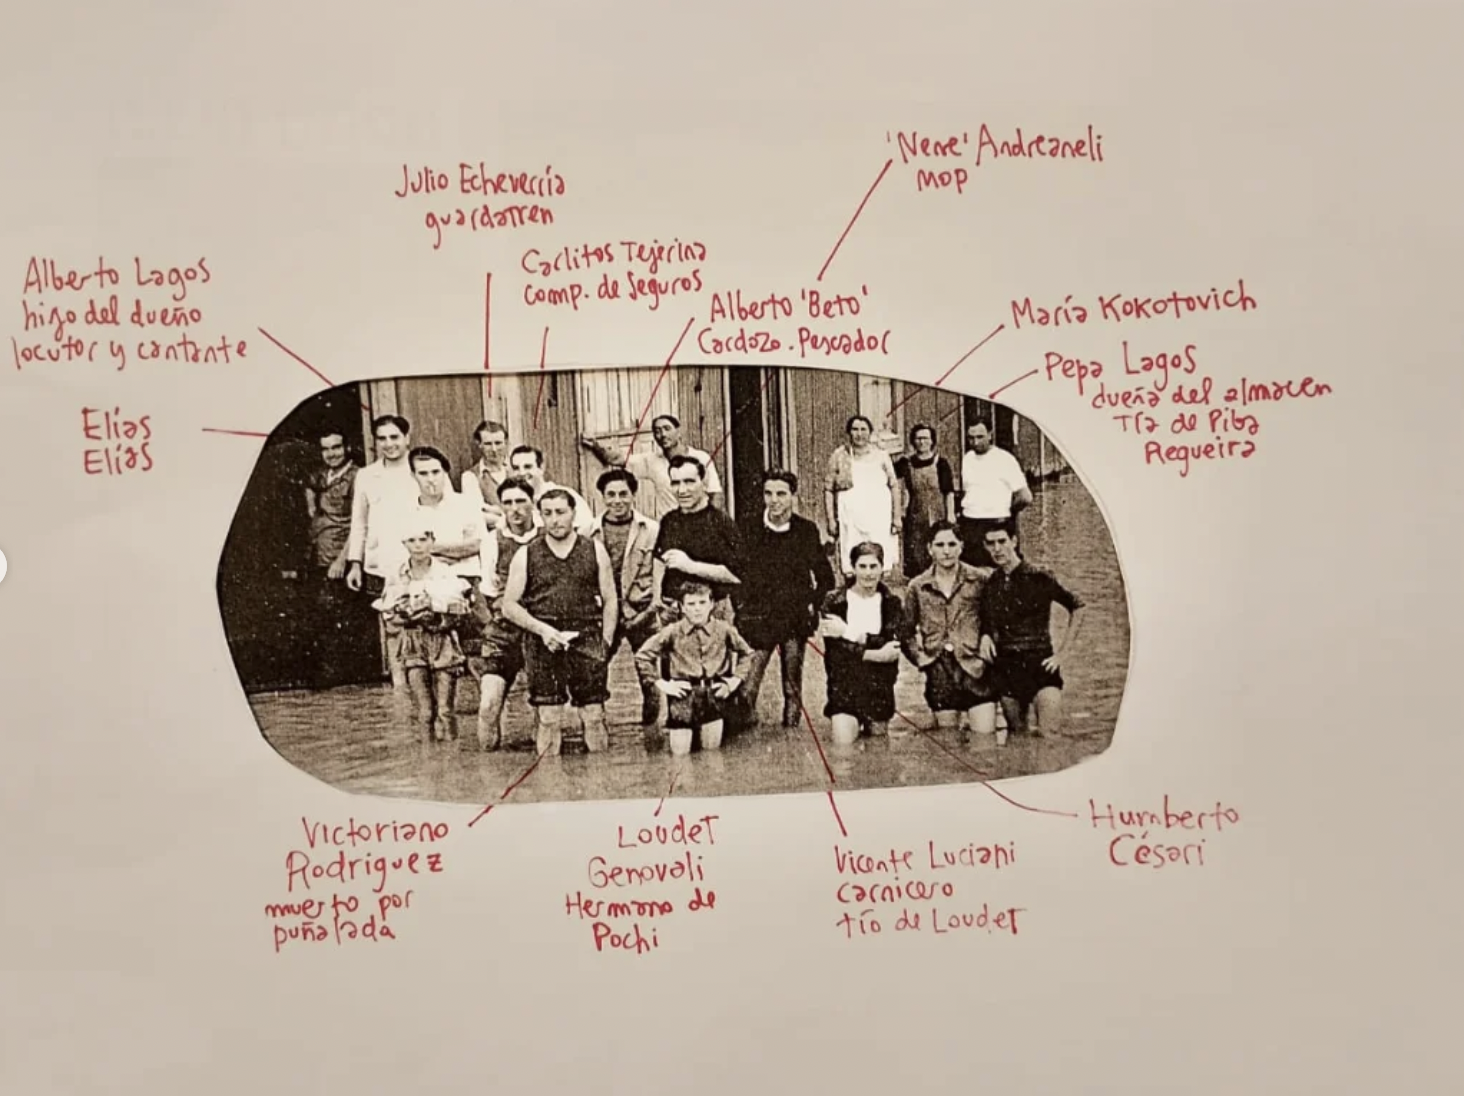 'Nene' Andreaneli
MOP
Julio Echeverría
guardatren
Carlitos Tejerina
comp. de Seguros
Alberto Lagos
hijo del dueño
locutor y cantante
Alberto 'Beto'
Cardozo. Pescador
María Kokotovich
Pepa Lagos
dueña del almacen
Tía de Piba
Regueira
Elías
Elías
Victoriano
Rodriguez
muerto por
puñalada
Loudet
Genovali
Hermano de
Pochi
Vicente Luciani
carnicero
tío de Loudet
Humberto
Césari